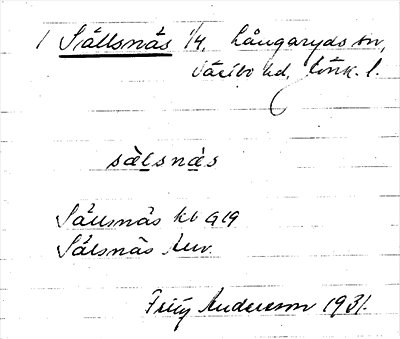 1 Sällsnäs 1/4, Långaryds sn,
Västbo hd, Jönk. l.
sälsnäs
Sällsnäs kb 1919
Sälsnäs
Fritz Anderson 1931.